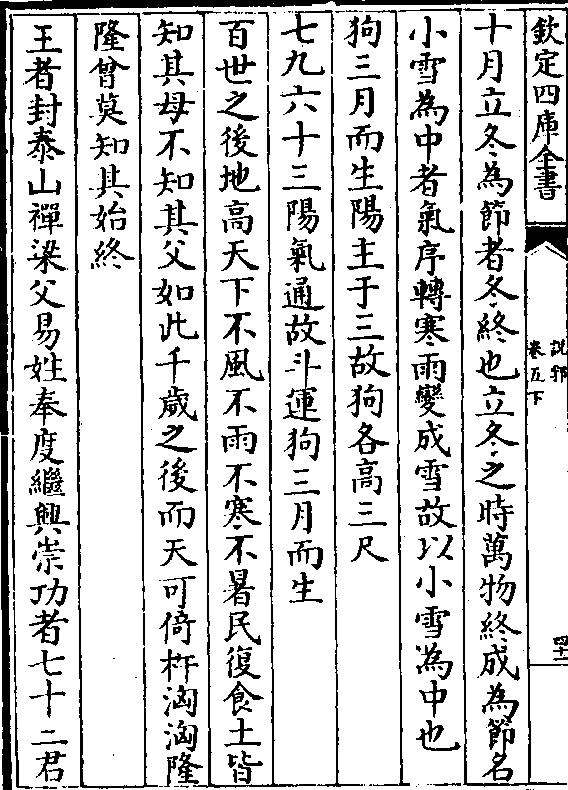 欽定四庫全書
說郛
卷五下
十月立冬為節者冬終也立冬之時萬物終成為節名
小雪為中者氣序轉寒雨變成雪故以小雪為中也
狗三月而生陽主于三故狗各高三尺
七九六十三陽氣通故斗運狗三月而生
百世之後地高天下不風不雨不寒不暑民復食土皆
知其母不知其父如此千歲之後而天可倚杵洶洶隆
隆曾莫知其始終
王者封泰山禪梁父易姓奉度繼興崇功者七十二君